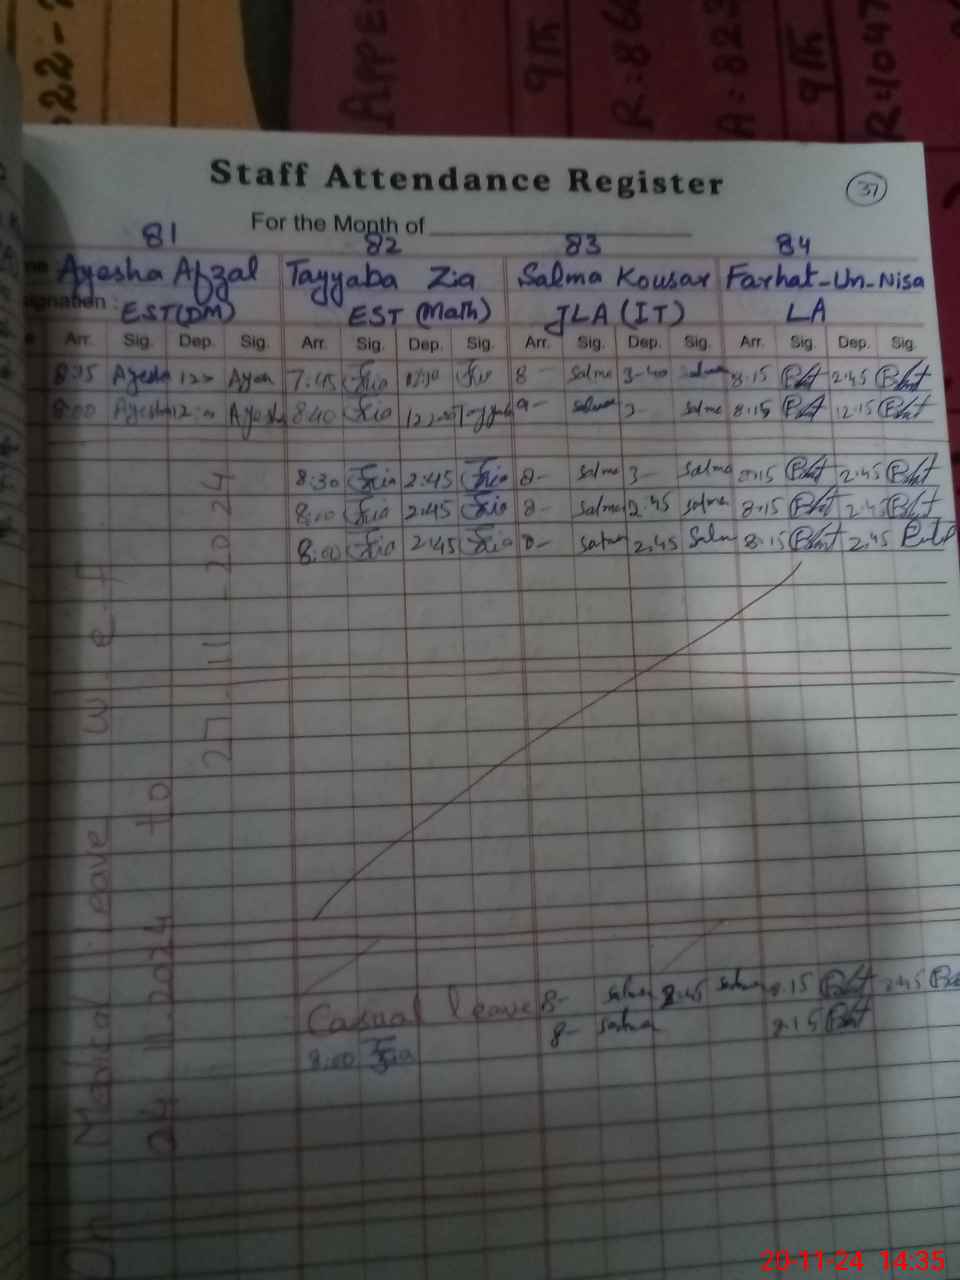 022-2
APPE
9th
R=86
A=823
9th
R=404
Staff Attendance Register
37
For the Month of
81 82 83 84
Ayesha Afzal Tayyaba Zia Salma Kousar Farhat-Un-Nisa
ignation : EST(DM) EST (Math) JLA (IT) LA
Arr. Sig. Dep. Sig. Arr. Sig. Dep. Sig. Arr. Sig. Dep. Sig. Arr. Sig. Dep. Sig.
Ayesha 7:45 Zia 8- Salma 3-40 Salma 8.15 2:45
8:00 Ayesha Ayesha 8:40 Zia Tayyaba 9- Salma 3- Salma 8:15 12.15
8:30 Zia 2:45 Zia 8- Salma 3- Salma 8.15 2.45
8:00 Zia 2:45 Zia 8- Salma 2.45 Salma 8.15 2.45
8:00 Zia 2:45 Zia 8- Salma 2.45 Salma 8.15 2.45
On Medical Leave w.e.f
24.11.2024 to
27.11.2024
Casual leave 8- Salma Salma 8.15 2.45
8:00 Zia 8- Salma 8.15
20-11-24 14:35